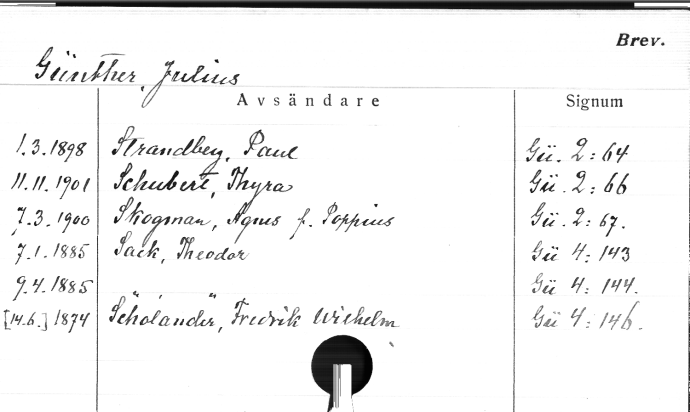 Brev.
Günther, Julius
Avsändare Signum
1.3.1898 Strandberg, Paul Gü. 2:64
11.11.1901 Schubert, Thyra Gü. 2:66
7.3.1900 Skogman, Agnes f. Poppius Gü. 2:67.
7.1.1885 Sack, Theodor Gü 4:143
9.4.1885 " " Gü 4:144.
[14.6.] 1874 Scholander, Fredrik Wilhelm Gü 4:146.